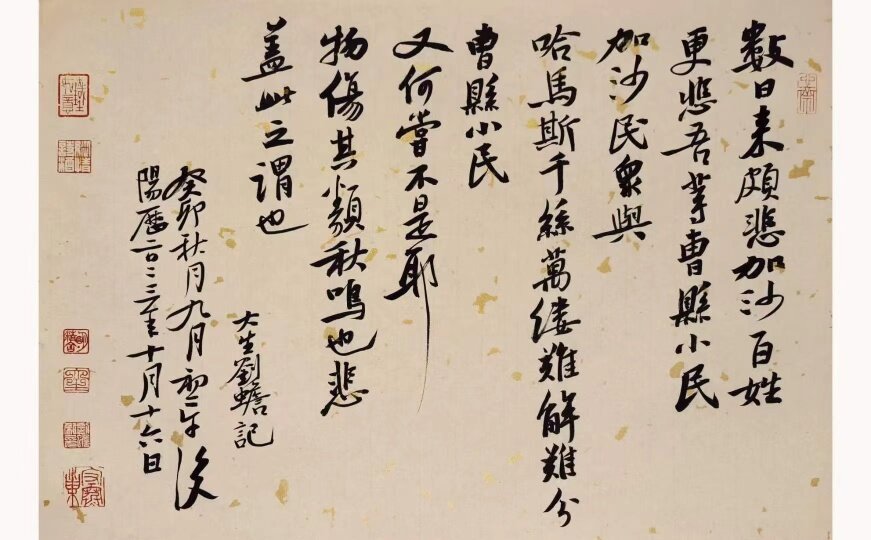 數日来頗悲加沙百姓
更悲吾等曹縣小民
加沙民衆與
哈馬斯千絲萬缕難解難分
曹縣小民
又何嘗不是耶
物傷其類秋鳴也悲
盖此之謂也
大生劉蟾記
癸卯秋月九月初二午後
陽歷二〇二三年十月十六日